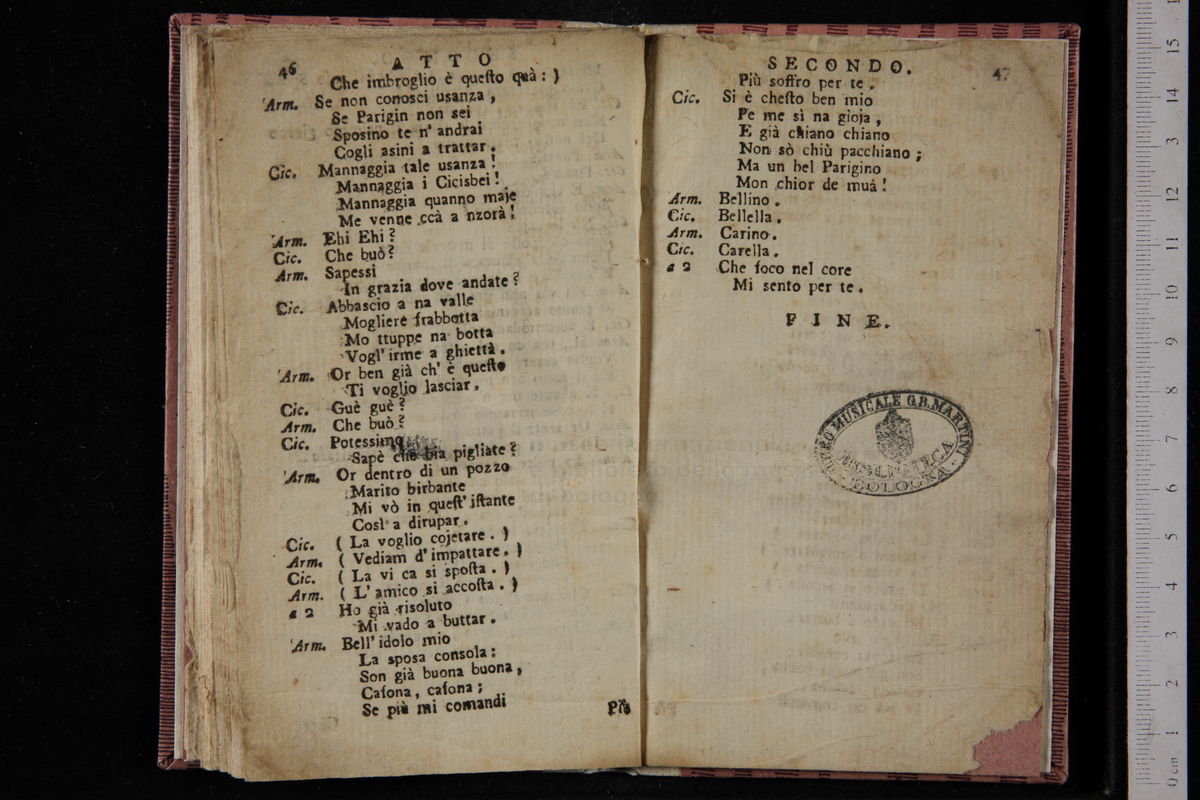 46
ATTO
Che imbroglio è queſto quà: )
Arm. Se non conosci usanza,
Se Parigin non sei
Sposino te n' andrai
Cogli asini a trattar.
Cic. Mannaggia tale usanza!
Mannaggia i Cicisbei!
Mannaggia quanno maje
Me venne ccà a nzorà!
Arm. Ehi Ehi?
Cic. Che buò?
Arm. Sapessi
In grazia dove andate?
Cic. Abbascio a na valle
Mogliere frabbotta
Mo ttuppe na botta
Vogl' irme a ghiettà.
Arm. Or ben già ch' è queſto
Ti voglio lasciar.
Cic. Guè guè?
Arm. Che buò?
Cic. Potessimo
Sapè che bia pigliate?
Arm. Or dentro di un pozzo
Marito birbante
Mi vò in queſt' iſtante
Così a dirupar.
Cic. ( La voglio cojetare. )
Arm. ( Vediam d' impattare. )
Cic. ( La vi ca si spoſta. )
Arm. ( L' amico si accoſta. )
a 2 Ho già risoluto
Mi vado a buttar.
Arm. Bell' idolo mio
La sposa consola:
Son già buona buona,
Caſona, caſona;
Se più mi comandi
Più
SECONDO.
47
Più soffro per te.
Cic. Si è cheſto ben mio
Pe me sì na gioja,
E già chiano chiano
Non sò chiù pacchiano;
Ma un bel Parigino
Mon chior de muà!
Arm. Bellino.
Cic. Bellella.
Arm. Carino.
Cic. Carella.
a 2 Che foco nel core
Mi sento per te.
FINE.
MUSICALE G.B. MARTINI
BIBLIOTECA
BOLOGNA
15
14
13
12
11
10
9
8
7
6
5
4
3
2
1
0 cm